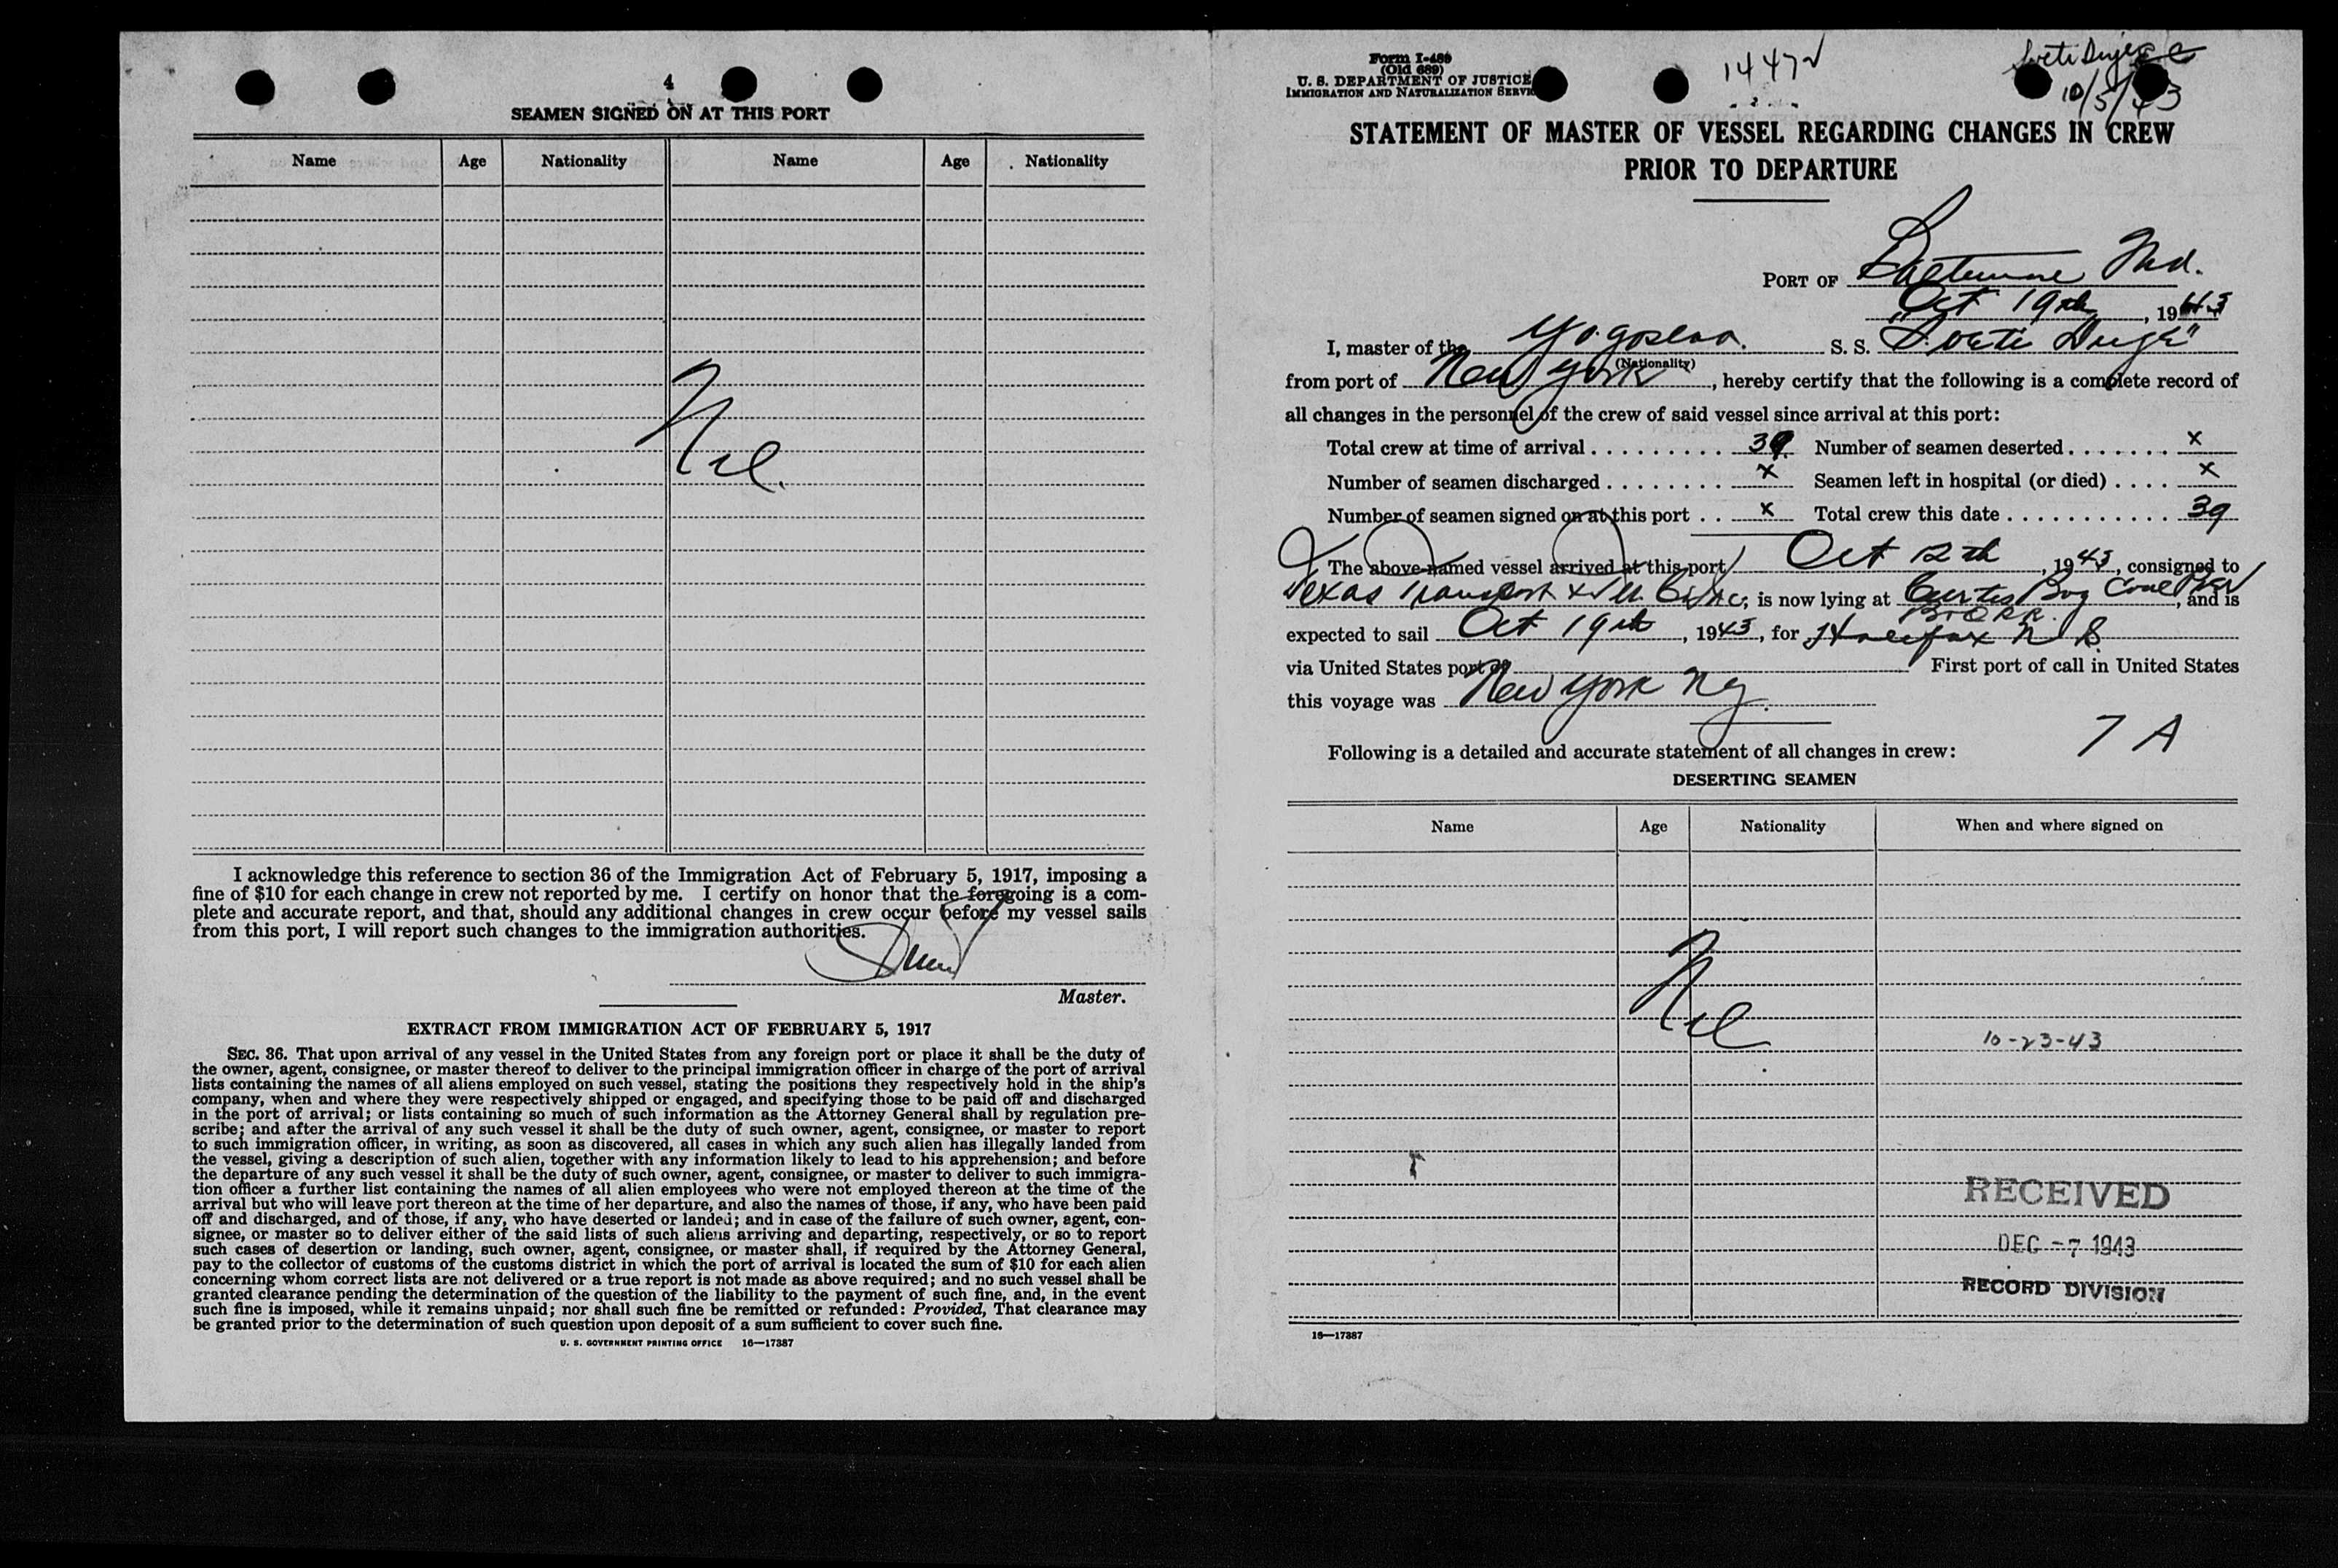 4
SEAMEN SIGNED ON AT THIS PORT
Name Age Nationality Name Age Nationality
Nil.
I acknowledge this reference to section 36 of the Immigration Act of February 5, 1917, imposing a
fine of $10 for each change in crew not reported by me. I certify on honor that the foregoing is a com-
plete and accurate report, and that, should any additional changes in crew occur before my vessel sails
from this port, I will report such changes to the immigration authorities.
Master.
EXTRACT FROM IMMIGRATION ACT OF FEBRUARY 5, 1917
SEC. 36. That upon arrival of any vessel in the United States from any foreign port or place it shall be the duty of
the owner, agent, consignee, or master thereof to deliver to the principal immigration officer in charge of the port of arrival
lists containing the names of all aliens employed on such vessel, stating the positions they respectively hold in the ship's
company, when and where they were respectively shipped or engaged, and specifying those to be paid off and discharged
in the port of arrival; or lists containing so much of such information as the Attorney General shall by regulation pre-
scribe; and after the arrival of any such vessel it shall be the duty of such owner, agent, consignee, or master to report
to such immigration officer, in writing, as soon as discovered, all cases in which any such alien has illegally landed from
the vessel, giving a description of such alien, together with any information likely to lead to his apprehension; and before
the departure of any such vessel it shall be the duty of such owner, agent, consignee, or master to deliver to such immigra-
tion officer a further list containing the names of all alien employees who were not employed thereon at the time of the
arrival but who will leave port thereon at the time of her departure, and also the names of those, if any, who have been paid
off and discharged, and of those, if any, who have deserted or landed; and in case of the failure of such owner, agent, con-
signee, or master so to deliver either of the said lists of such aliens arriving and departing, respectively, or so to report
such cases of desertion or landing, such owner, agent, consignee, or master shall, if required by the Attorney General,
pay to the collector of customs of the customs district in which the port of arrival is located the sum of $10 for each alien
concerning whom correct lists are not delivered or a true report is not made as above required; and no such vessel shall be
granted clearance pending the determination of the question of the liability to the payment of such fine, and, in the event
such fine is imposed, while it remains unpaid; nor shall such fine be remitted or refunded: Provided, That clearance may
be granted prior to the determination of such question upon deposit of a sum sufficient to cover such fine.
U. S. GOVERNMENT PRINTING OFFICE 16—17387
Form I-489
(Old 689)
U. S. DEPARTMENT OF JUSTICE
IMMIGRATION AND NATURALIZATION SERVICE
1447
Sveti Duje
10/5/43
STATEMENT OF MASTER OF VESSEL REGARDING CHANGES IN CREW
PRIOR TO DEPARTURE
PORT OF Baltimore Md.
Oct 19th, 1943
I, master of the Yogoslav. S. S. "Sveti Duje"
(Nationality)
from port of New York, hereby certify that the following is a complete record of
all changes in the personnel of the crew of said vessel since arrival at this port:
Total crew at time of arrival . . . . . . . . . 39. Number of seamen deserted . . . . . . . x
Number of seamen discharged . . . . . . . . x Seamen left in hospital (or died) . . . . x
Number of seamen signed on at this port . . x Total crew this date . . . . . . . . . . . . 39
The above-named vessel arrived at this port Oct 12th, 1943, consigned to
Texas Transport & Ter. Co Inc, is now lying at Curtis Bay Coal Pier, and is
B&O RR.
expected to sail Oct 19th, 1943, for Halifax N S.
via United States port of First port of call in United States
this voyage was New York NY.
7 A
Following is a detailed and accurate statement of all changes in crew:
DESERTING SEAMEN
Name Age Nationality When and where signed on
Nil
10-23-43
RECEIVED
DEC -7 1943
RECORD DIVISION
16—17387